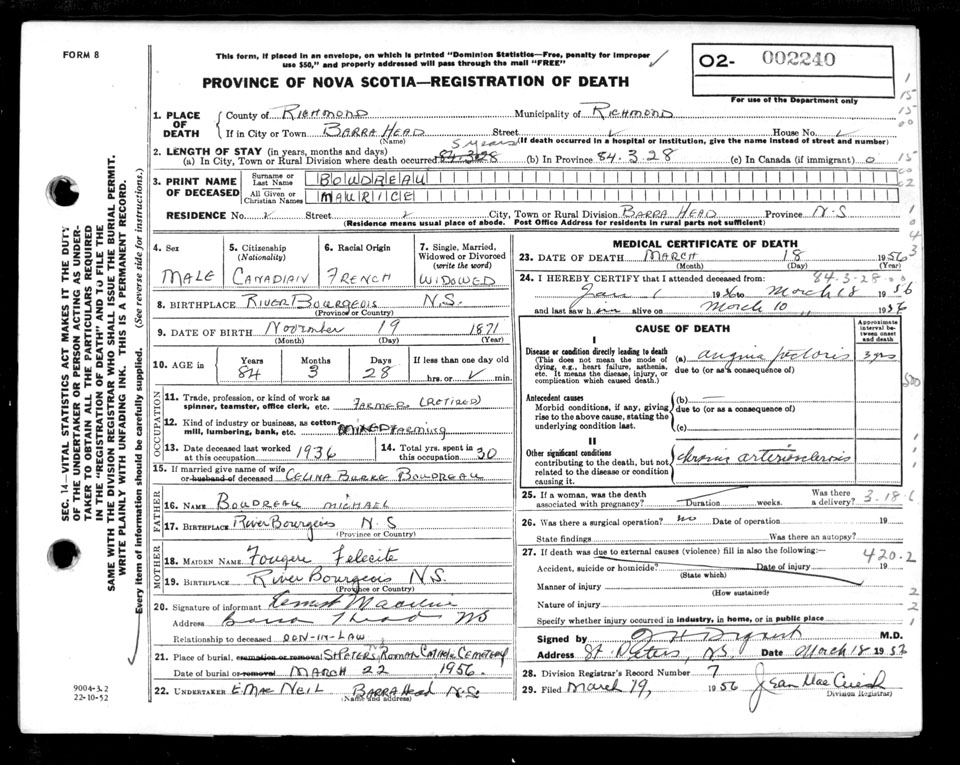 FORM 8
This form, if placed in an envelope, on which is printed "Dominion Statistics—Free, penalty for improper
use $50," and properly addressed will pass through the mail "FREE"
PROVINCE OF NOVA SCOTIA—REGISTRATION OF DEATH
02- 002240
For use of the Department only
1. PLACE OF DEATH
County of RICHMOND Municipality of RICHMOND
If in City or Town BARRA HEAD Street House No.
(Name) (If death occurred in a hospital or institution, give the name instead of street and number)
2. LENGTH OF STAY (in years, months and days)
(a) In City, Town or Rural Division where death occurred 84.3.28 5 years (b) In Province 84.3.28 (c) In Canada (if immigrant) 0
3. PRINT NAME OF DECEASED
Surname or Last Name BOUDREAU
All Given or Christian Names MAURICE
RESIDENCE No. Street City, Town or Rural Division BARRA HEAD Province N.S
(Residence means usual place of abode. Post Office Address for residents in rural parts not sufficient)
4. Sex MALE
5. Citizenship (Nationality) CANADIAN
6. Racial Origin FRENCH
7. Single, Married, Widowed or Divorced (write the word) WIDOWED
8. BIRTHPLACE RIVER BOURGEOIS N.S.
(Province or Country)
9. DATE OF BIRTH November 19 1871
(Month) (Day) (Year)
10. AGE in Years 84 Months 3 Days 28 If less than one day old hrs. or min.
OCCUPATION
11. Trade, profession, or kind of work as spinner, teamster, office clerk, etc. FARMER (RETIRED)
12. Kind of industry or business, as cotton mill, lumbering, bank, etc. MIXED Farming
13. Date deceased last worked at this occupation 1936
14. Total yrs. spent in this occupation 30
15. If married give name of wife or husband of deceased CELINA BURKE BOUDREAU
FATHER
16. NAME BOUDREAU MICHAEL
17. BIRTHPLACE River Bourgeois N.S
(Province or Country)
MOTHER
18. MAIDEN NAME Fougere Felecite
19. BIRTHPLACE River Bourgeois N.S.
(Province or Country)
20. Signature of informant
Address Barra Head NS
Relationship to deceased SON-IN-LAW
21. Place of burial, cremation or removal St PETERS ROMAN Catholic CEMETERY
Date of burial or removal MARCH 22 1956.
22. UNDERTAKER E. MacNEIL BARRA Head N.S.
(Name and address)
MEDICAL CERTIFICATE OF DEATH
23. DATE OF DEATH MARCH 18 1956
(Month) (Day) (Year)
84-3-28
24. I HEREBY CERTIFY that I attended deceased from:
Jan 1 1956 to March 18 1956
and last saw h im alive on March 10 1956
CAUSE OF DEATH
Approximate interval between onset and death
I
Disease or condition directly leading to death (a) angina pectoris 3 yrs
(This does not mean the mode of dying, e.g., heart failure, asthenia, etc. It means the disease, injury, or complication which caused death.)
due to (or as a consequence of)
Antecedent causes (b) —
Morbid conditions, if any, giving rise to the above cause, stating the underlying condition last.
due to (or as a consequence of)
(c)
II
Other significant conditions
contributing to the death, but not related to the disease or condition causing it.
chronic arteriosclerosis
25. If a woman, was the death associated with pregnancy? Duration weeks. Was there a delivery?
26. Was there a surgical operation? no Date of operation 19
State findings Was there an autopsy?
27. If death was due to external causes (violence) fill in also the following:— 420.2
Accident, suicide or homicide? Date of injury 19
(State which)
Manner of injury
(How sustained)
Nature of injury
Specify whether injury occurred in industry, in home, or in public place
Signed by M.D.
Address St. Peters, N.S. Date March 18 1956
28. Division Registrar's Record Number 7
29. Filed March 19, 1956
Division Registrar)
SEC. 14—VITAL STATISTICS ACT MAKES IT THE DUTY
OF THE UNDERTAKER OR PERSON ACTING AS UNDER-
TAKER TO OBTAIN ALL THE PARTICULARS REQUIRED
IN THE "REGISTRATION OF DEATH" AND TO FILE THE
SAME WITH THE DIVISION REGISTRAR WHO SHALL ISSUE THE BURIAL PERMIT.
WRITE PLAINLY WITH UNFADING INK. THIS IS A PERMANENT RECORD.
Every item of information should be carefully supplied. (See reverse side for instructions.)
9004-3.2
22-10-52